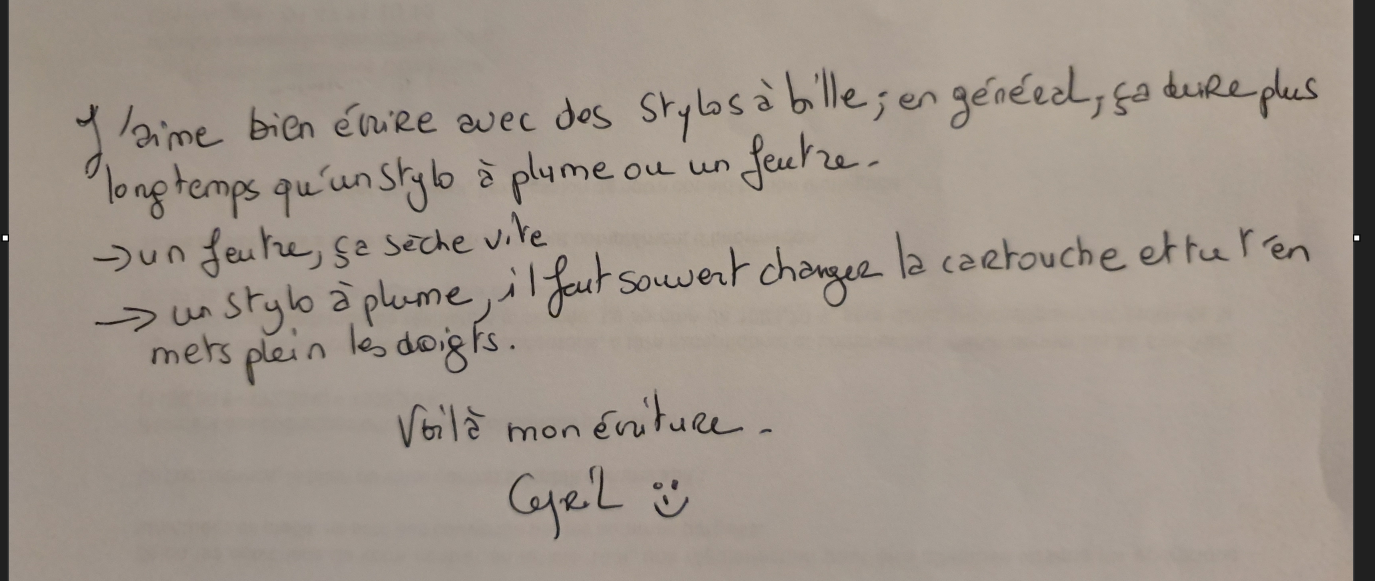 J'aime bien écrire avec des stylos à bille ; en général, ça dure plus
longtemps qu'un stylo à plume ou un feutre.
→ un feutre, ça sèche vite
→ un stylo à plume, il faut souvent changer la cartouche et tu t'en
mets plein les doigts.
Voilà mon écriture.
Cyril :)